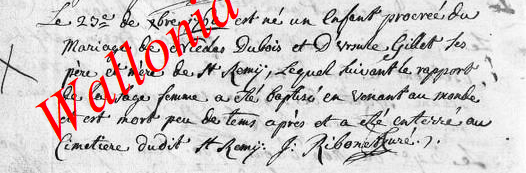 Le 23e de xbre est né un Enfant procreé du
Mariage de Nicolas Dubois et D'ursule Gillet ses
père et mere de St Remy, Lequel suivant le rapport
de la sage femme a eté baptisé en venant au monde
et est mort peu de tems après et a eté enterré au
Cimetiere dudit St Remy. J: Ribonet Curé.
Wallonia